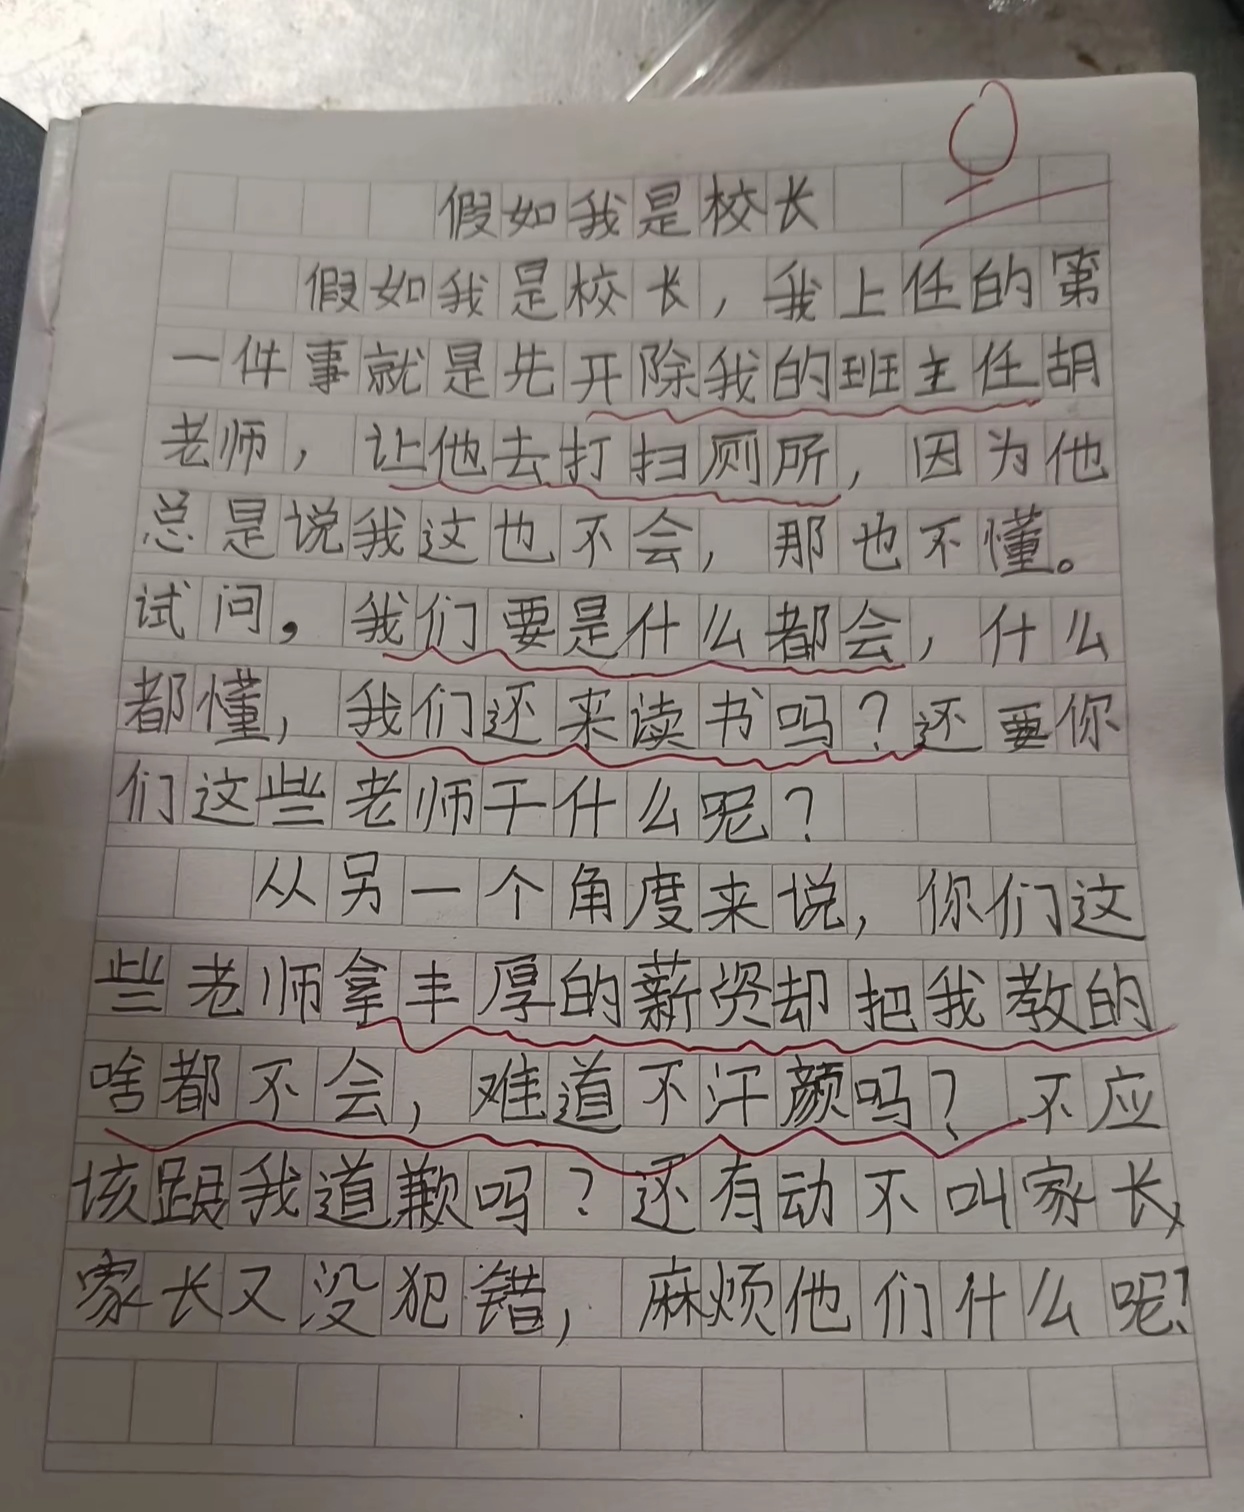 0
假如我是校长
假如我是校长，我上任的第
一件事就是先开除我的班主任胡
老师，让他去打扫厕所，因为他
总是说我这也不会，那也不懂。
试问，我们要是什么都会，什么
都懂，我们还来读书吗？还要你
们这些老师干什么呢？
从另一个角度来说，你们这
些老师拿丰厚的薪资却把我教的
啥都不会，难道不汗颜吗？不应
该跟我道歉吗？还有动不叫家长，
家长又没犯错，麻烦他们什么呢！